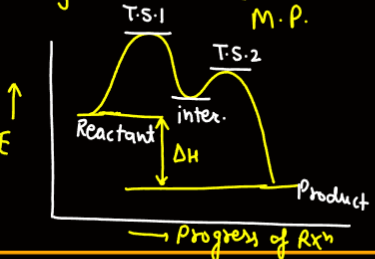 T.S.1
M.P.
T.S.2
inter.
Reactant
ΔH
E
Product
Progress of Rxⁿ